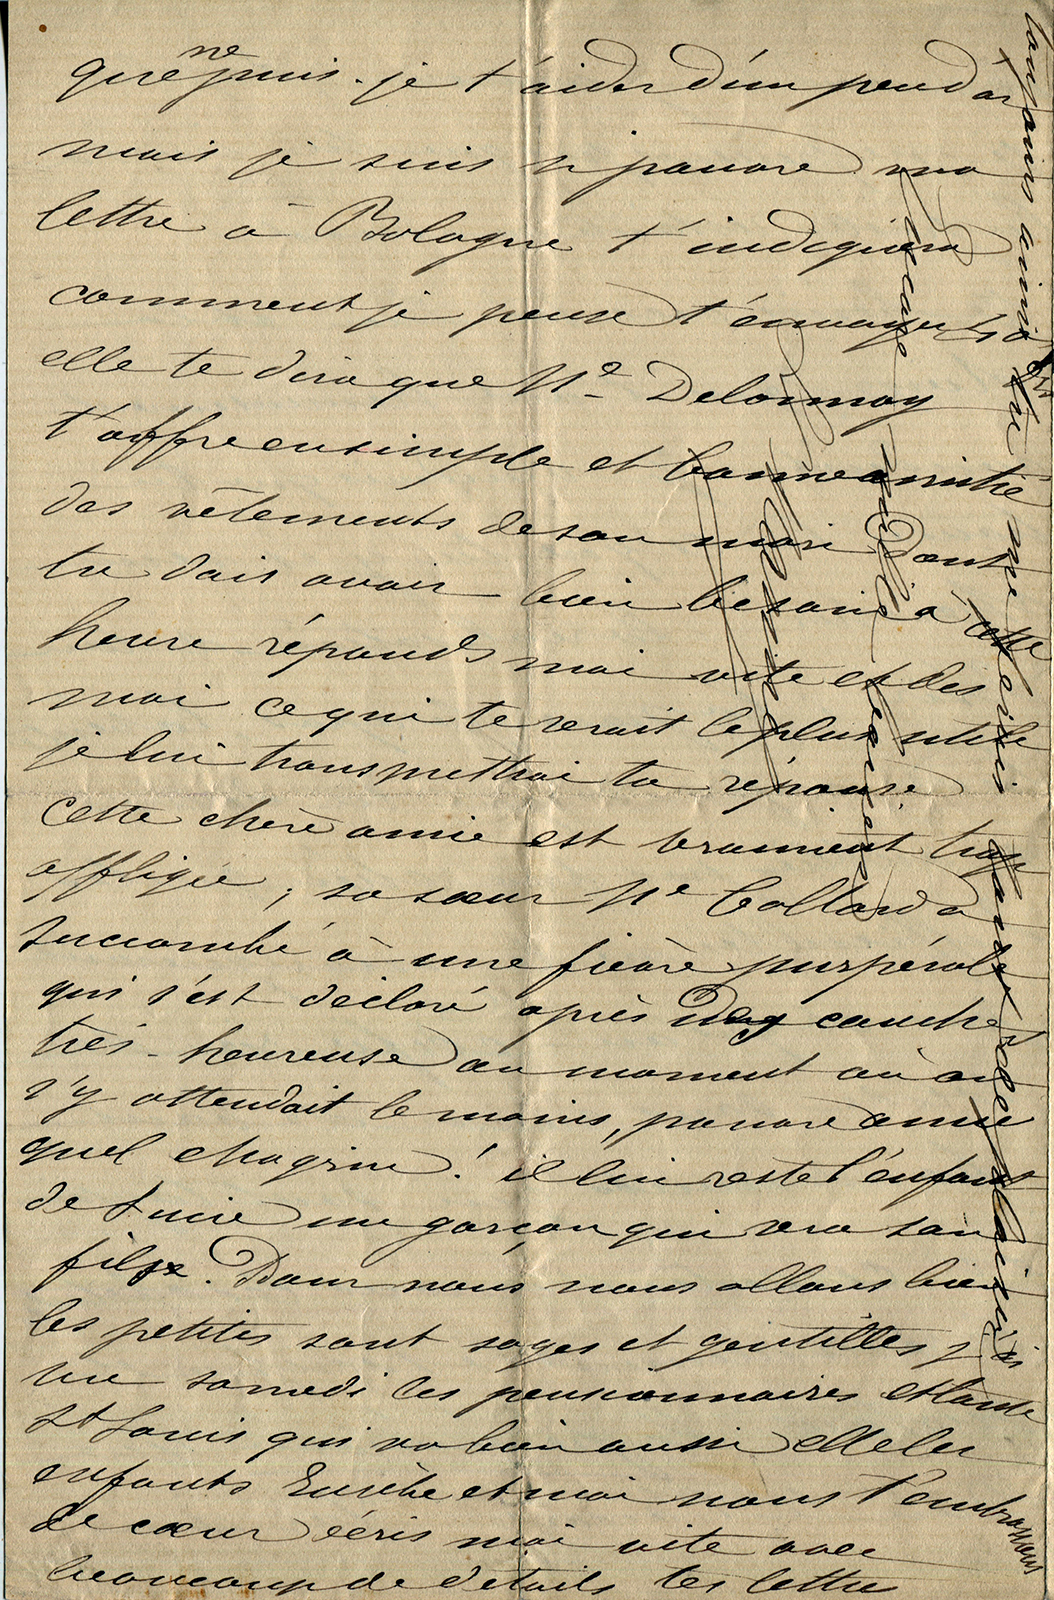 que ne puis-je t'aider d'un peu d'or
mais je suis si pauvre ma
lettre à Bologne t'indiquera
comment je pense t'envoyer
elle te dira que Me Delonnay
t'offre en simple et bonne amitié
des vêtements de son mari dont
tu dois avoir bien besoin à cette
heure réponds moi vite et dis
moi ce qui te serait le plus utile
je lui transmettrai ta réponse
cette chère amie est vraiment trop
affligée, sa sœur Me Collard a
succombé à une fièvre purpérale
qui s'est déclaré après des couches
très-heureuse au moment où on
s'y attendait le moins, pauvre amie
quel chagrin! il lui reste l'enfant
de Lucie un garçon qui sera son
fils. Pour nous, nous allons bien
les petites sont sages et gentilles j'ai
vu samedi les pensionnaires et tante
St Louis qui va bien aussi elle les
enfants Eusèbe et moi nous t'embrassons
de cœur écris moi vite avec
beaucoup de détails tes lettres
toujours ainsi tu me
encore mille